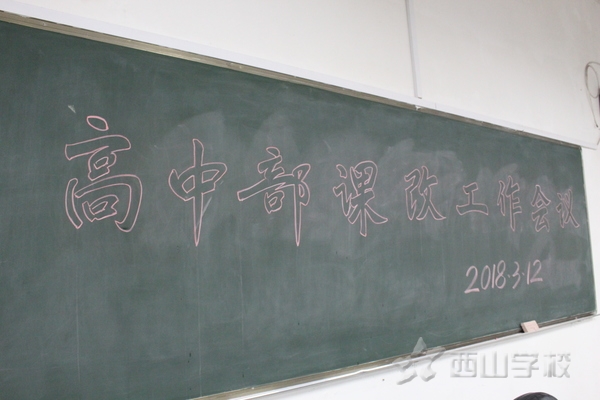 高中部课改工作会议
2018.3.12
西山学校